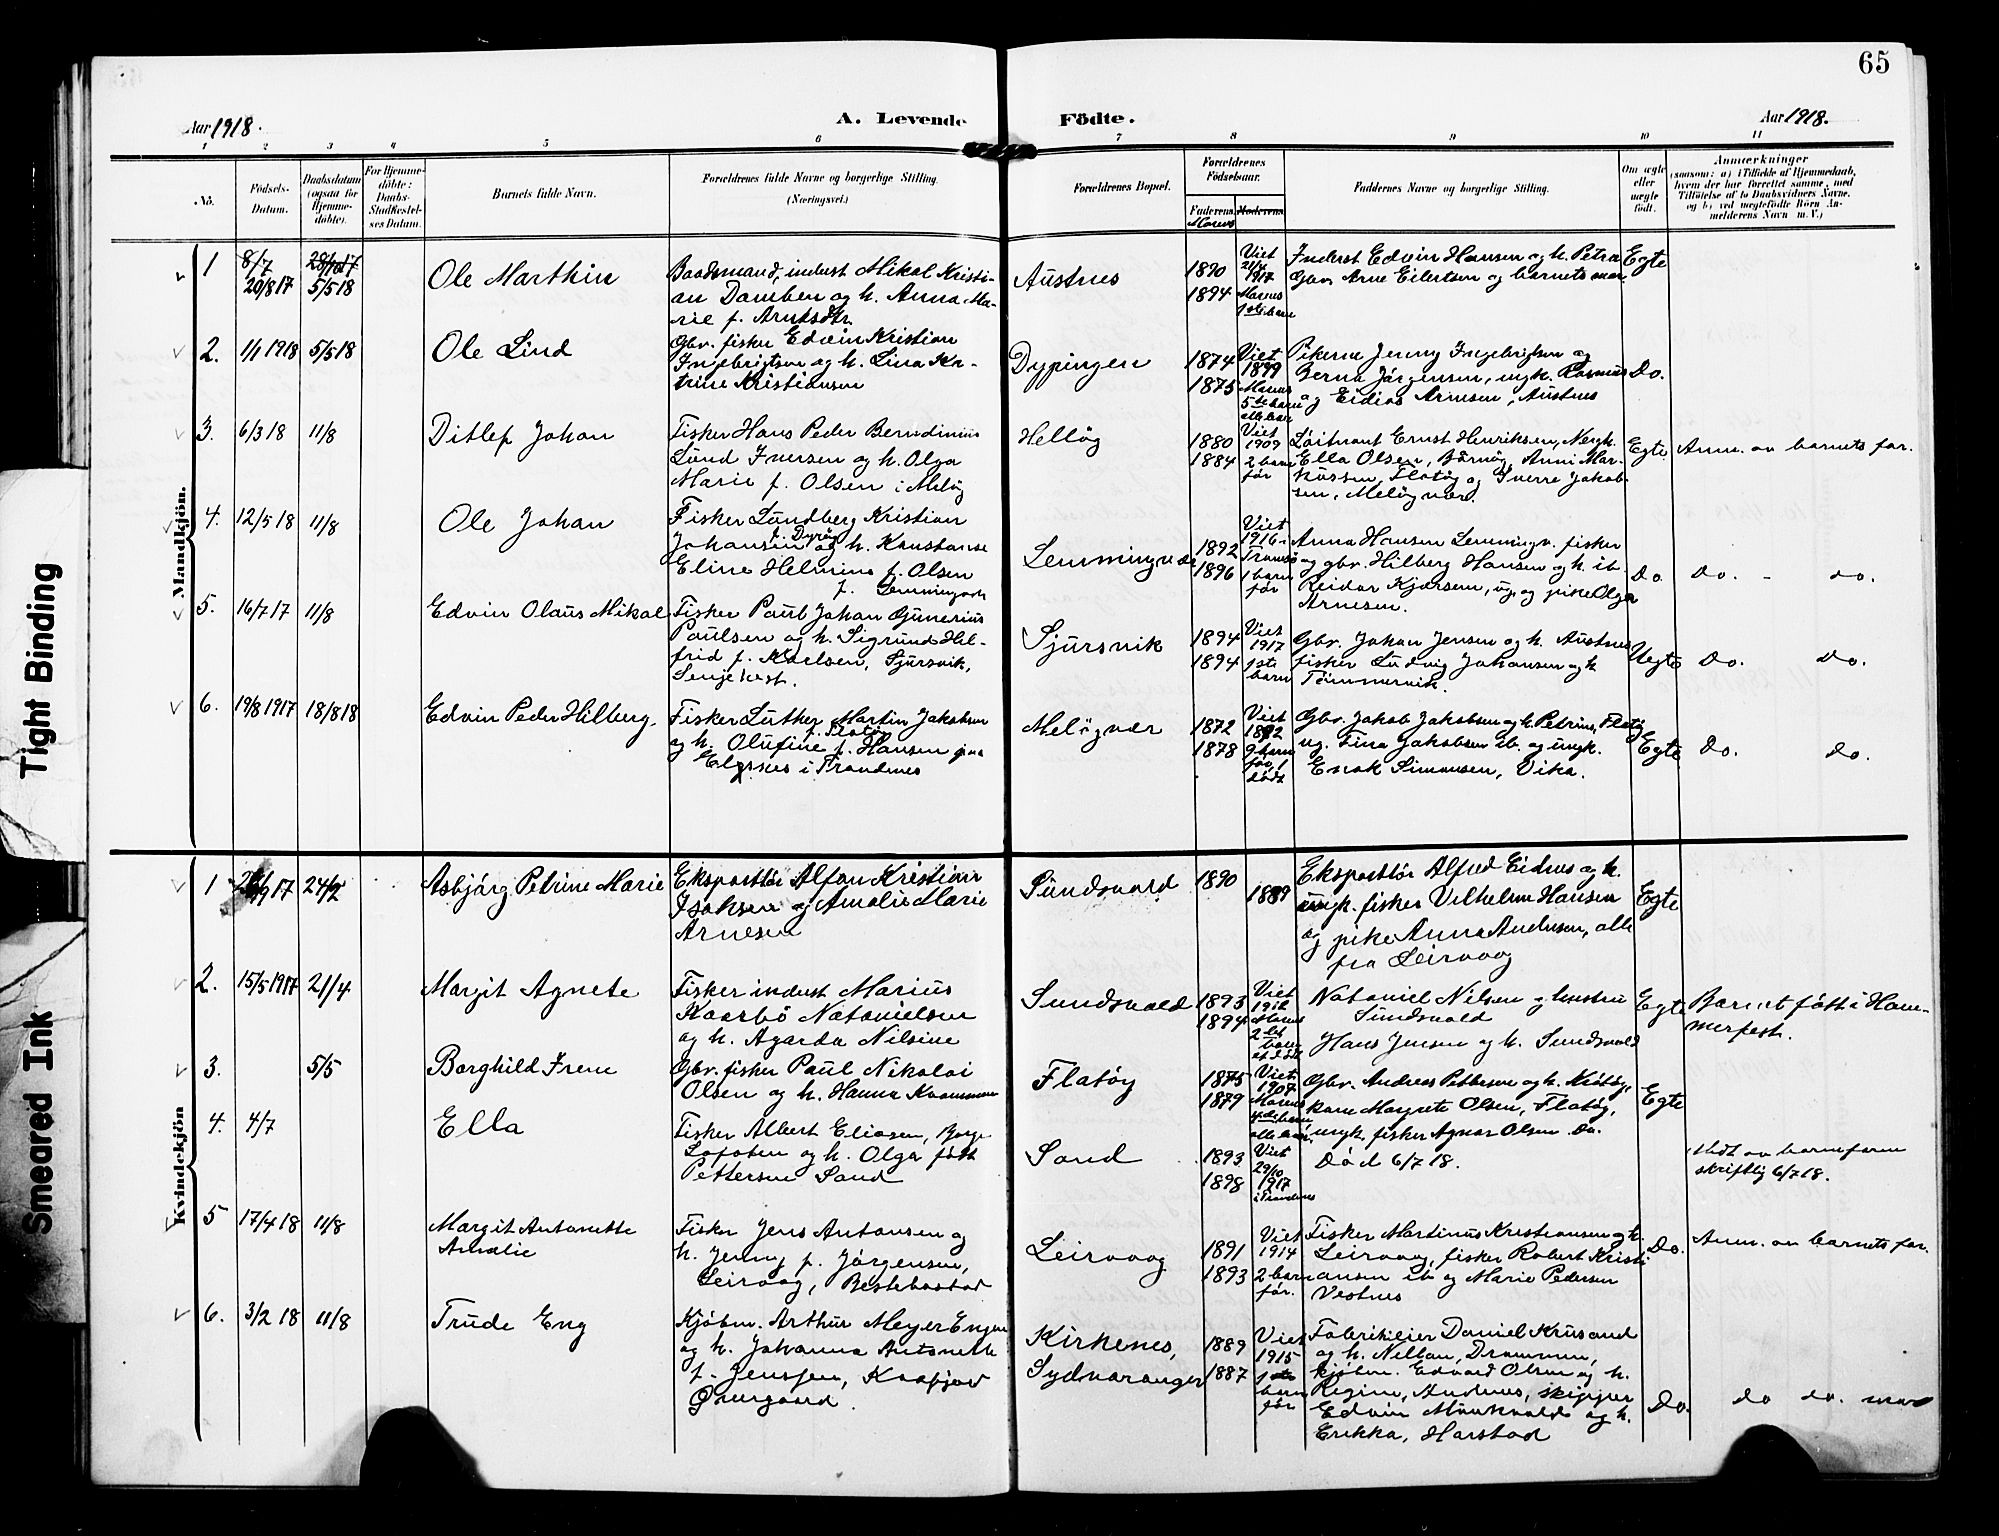 65
Aar 1918.
A. Levende Födte.
Aar 1918.
1 2 3 4 5 6 7 8 9 10 11
No.
Födsels-
Datum.
Daabsdatum
(ogsaa for
Hjemme-
döbte).
For Hjemme-
döbte:
Daabs-
Stadfæstel-
ses Datum.
Barnets fulde Navn.
Forældrenes fulde Navne og borgerlige Stilling.
(Næringsvei.)
Forældrenes Bopæl.
Forældrenes
Födselsaar.
Faderens
Moderens
Morens
Faddernes Navne og borgerlige Stilling.
Om ægte
eller
uægte
födt.
Anmærkninger
(saasom: a) i Tilfælde af Hjemmedaab,
hvem der har forrettet samme, med
Tilföielse af to Daabsvidners Navne,
og b) ved uægtefödte Börn An-
melderens Navn m. V.)
Mandkjön.
1
8/7
20/8 17
5/5 18
Ole Marthin
Baadsmand, inderst Mikal Kristi-
an Danben og h. Anna Ma-
rie f.
Austnes
1890
1894
Viet
1917
Morens
1ste barn
Inderst Edvin Hansen og h. Petra
Gbr. Arne Eilertsen og barnets mor
Egte
2.
1/1 1918
5/5 18
Ole Lind
Gbr. fisker Edvin Kristian
Ingebrigtsen og h. Lina Ka-
trine Kristiansen
Dypingen
1874
1875
Viet
1899
Morens
5te barn
alle
Pikerne Jenny Ingebrigtsen og
Berna Jörgensen, ungk. Rasmus
og Eidias Arnesen, Austnes
Do.
3.
6/3 18
11/8
Ditlef Johan
Fisker Hans Peder Berndinius
Lund Iversen og h. Olga
Marie f. Olsen i Melöy
Hellöy
1880
1884
Viet
1909
2 barn
för
Löitnant Ernst Henriksen,
Ella Olsen, Anni Mar-
kussen, Flatöy og Sverre Jakob-
sen, Melöyvær.
Egte
Anm. av barnets far.
4.
12/5 18
11/8
Ole Johan
Fisker Lundberg Kristian
f. Dyröy
Johansen og h. Konstanse
Eline Helmine f. Olsen
f. Lemmingvær
Lemmingvær
1892
1896
Viet
1916 i
Tromsö
1 barn
för
Anna Hansen Lemmingv. fisker
og gbr. Hilberg Hansen og h. ib.
Reidar Kjærsen, ug. og pike Olga
Arnesen.
Do.
Do. - do.
5.
16/7 17
11/8
Edvin Olaus Mikal
Fisker Paul Johan Gunerius
Paulsen og h. Sigrund Hel-
frid f. Karlsen, Sjursvik,
Senjehest.
Sjursvik
1894
1894
Viet
1917
1ste
barn
Gbr. Johan Jensen og h. Austnes
fisker Ludvig Johansen og h
Tömmervik.
Uegte
Do. Do.
6.
19/8 1917
18/8 18
Edvin Peder Hilberg.
Fisker Luther Martin Jakobsen
f. Flatöy
og h. Olufine f. Hansen paa
Elgsnes i Trondenes
Melöyvær
1872
1878
Viet
1892
9 barn
för, 1
dödt
Gbr. Jakob Jakobsen og h. Petrine, Flatöy
ug. Tina Jakobsen ib. og ungk.
Enok Simonsen, Vika.
Egte
Do. Do.
Kvindekjön
1
24/2
Asbjörg Petrine Marie
Ekspeditör Alfon Kristian
Isaksen og Amalie Marie
Arnesen
Sundsvold
1890
1889
Ekspeditör Alfred Eidnes og h.
ungk. fisker Vilhelm Hansen
og pike Anna Andersen, alle
fra Leirvaag
Egte
2.
15/5 1917
21/4
Margit Agnete
Fisker inderst Marius
Kaarbö Nataniellsen
og h. Agarda Nilsine
Sundsvold
1893
1894
Viet
Morens
2det
barn
Nataniel Nilsen og hustru
Sundsvold
Hans Jensen og h. Sundsvold
Egte
Barnet födt i Ham-
merfest.
3.
5/5
Borghild Irene
Gbr. fisker Paul Nikolai
Olsen og h. Hanna
Flatöy
1875
1879
Viet
1907
Morens
4de barn,
alle
Gbr. Andreas Pettersen og h.
kone Margrete Olsen, Flatöy,
ungk. fisker Agnar Olsen Do.
Egte
4.
4/7
Ella
Fisker Albert Eliasen, Borge
Lofoten og h. Olga född
Pettersen Sand
Sand
1893
1898
Viet
29/10
1917
i Trondenes
Död 6/7 18.
Meldt av barnefaren
skriftlig 6/7 18.
5
17/4 18
11/8
Margit Antonette
Amalie
Fisker Jens Antonsen og
h. Jenny f. Jörgensen,
Leirvaag, Bestebostad
Leirvaag
1891
1893
Viet
1914
2 barn
för.
Fisker Martinus Kristiansen og h.
Leirvaag, fisker Robert Kristi
ansen ib. og Marie Pedersen
Vestnes
Do.
Anm. av barnets far.
6.
3/2 18
11/8
Trude Eng
Kjöbm. Arthur Meyer Engen
og h. Johanna Antonette
f. Jenssen, Kaafjord
Övergaard.
Kirkenes,
Sydvaranger
1889
1887
Viet
1915
1ste
barn
för
Fabrikeier Daniel Krusand
og h. Drammen,
kjöbm. Edvard Olsen og h.
Regine, Andenes, skipper
Edvin og h.
Erikka, Harstad
Do.
do do. mor
Tight Binding
Smeared Ink